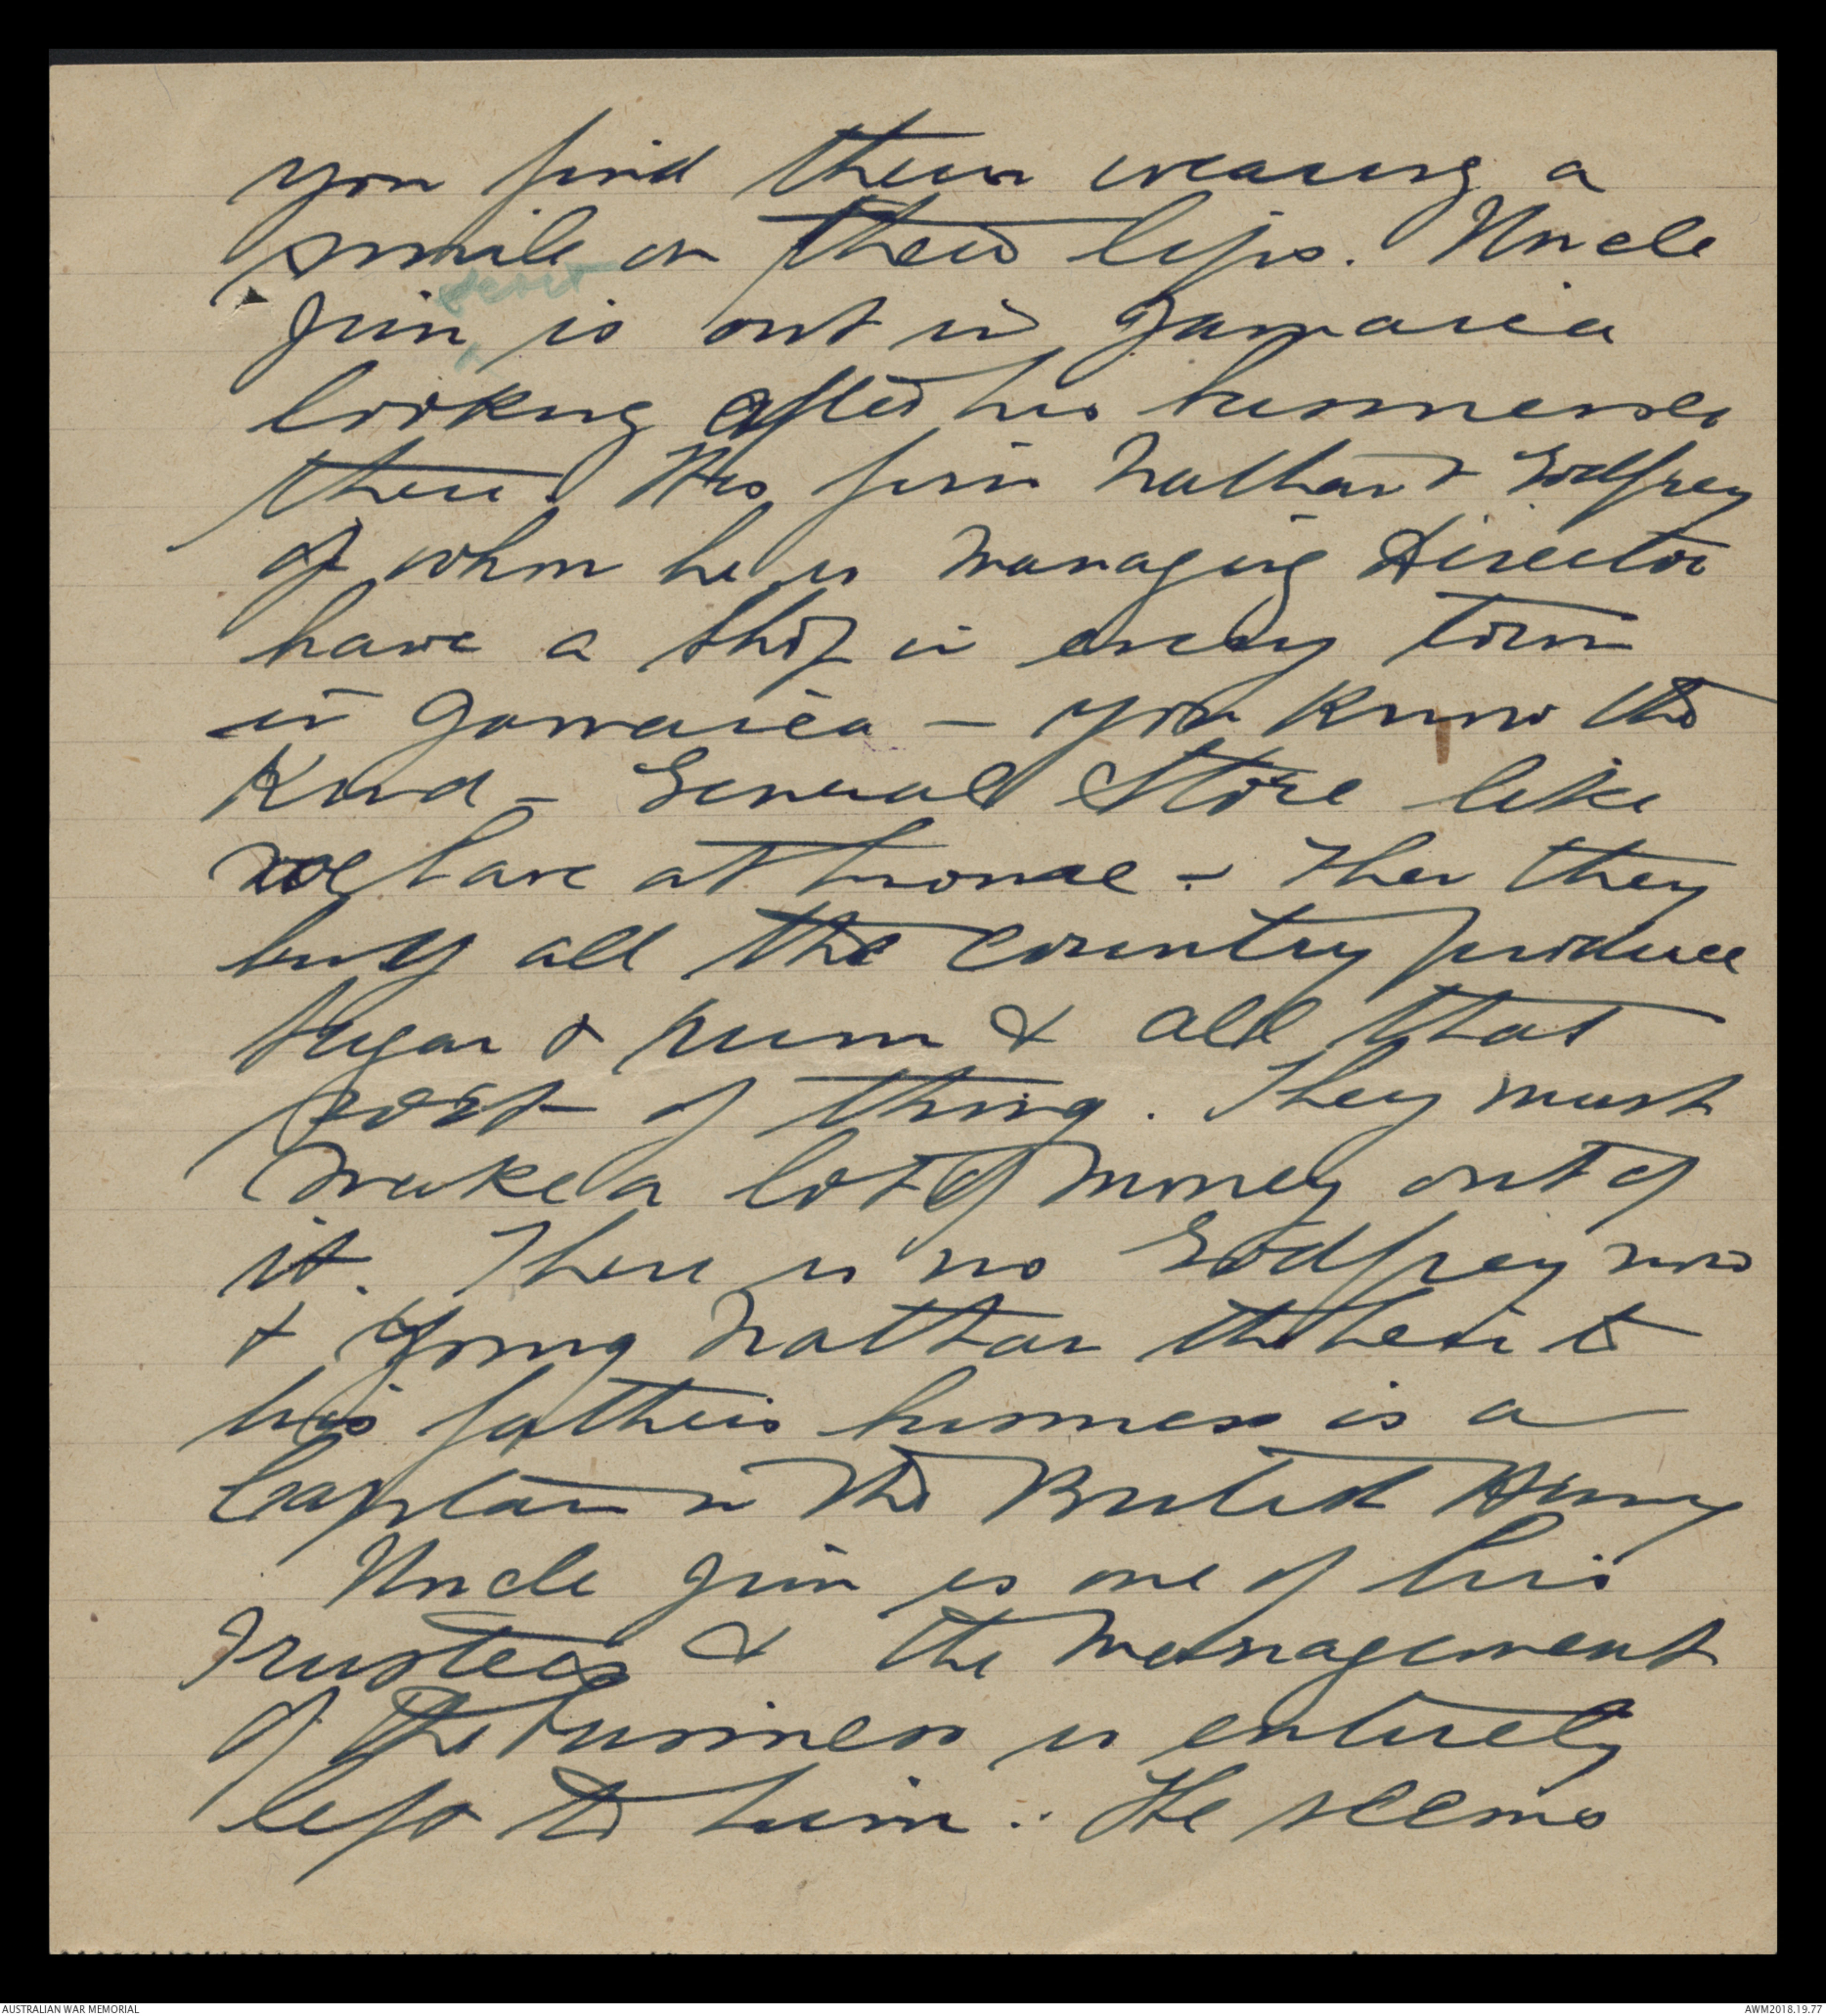 you find them wearing a
smile on their lips. Uncle
Jim is out in Jamaica
looking after his businesses
there. His firm Nathan & Godfrey
of whom he is Managing Director
have a shop in every town
in Jamaica - you know the
kind - General Store like
we have at home - Then they
buy all the country produce
sugar & rum & all that
sort of thing. They must
make a lot of money out of
it. There is no Godfrey now
& Young Nathan the heir to
his fathers business is a
Captain in the British Army
Uncle Jim is one of his
Trustees & the management
of the business is entirely
left to him. He seems
AUSTRALIAN WAR MEMORIAL
AWM2018.19.77